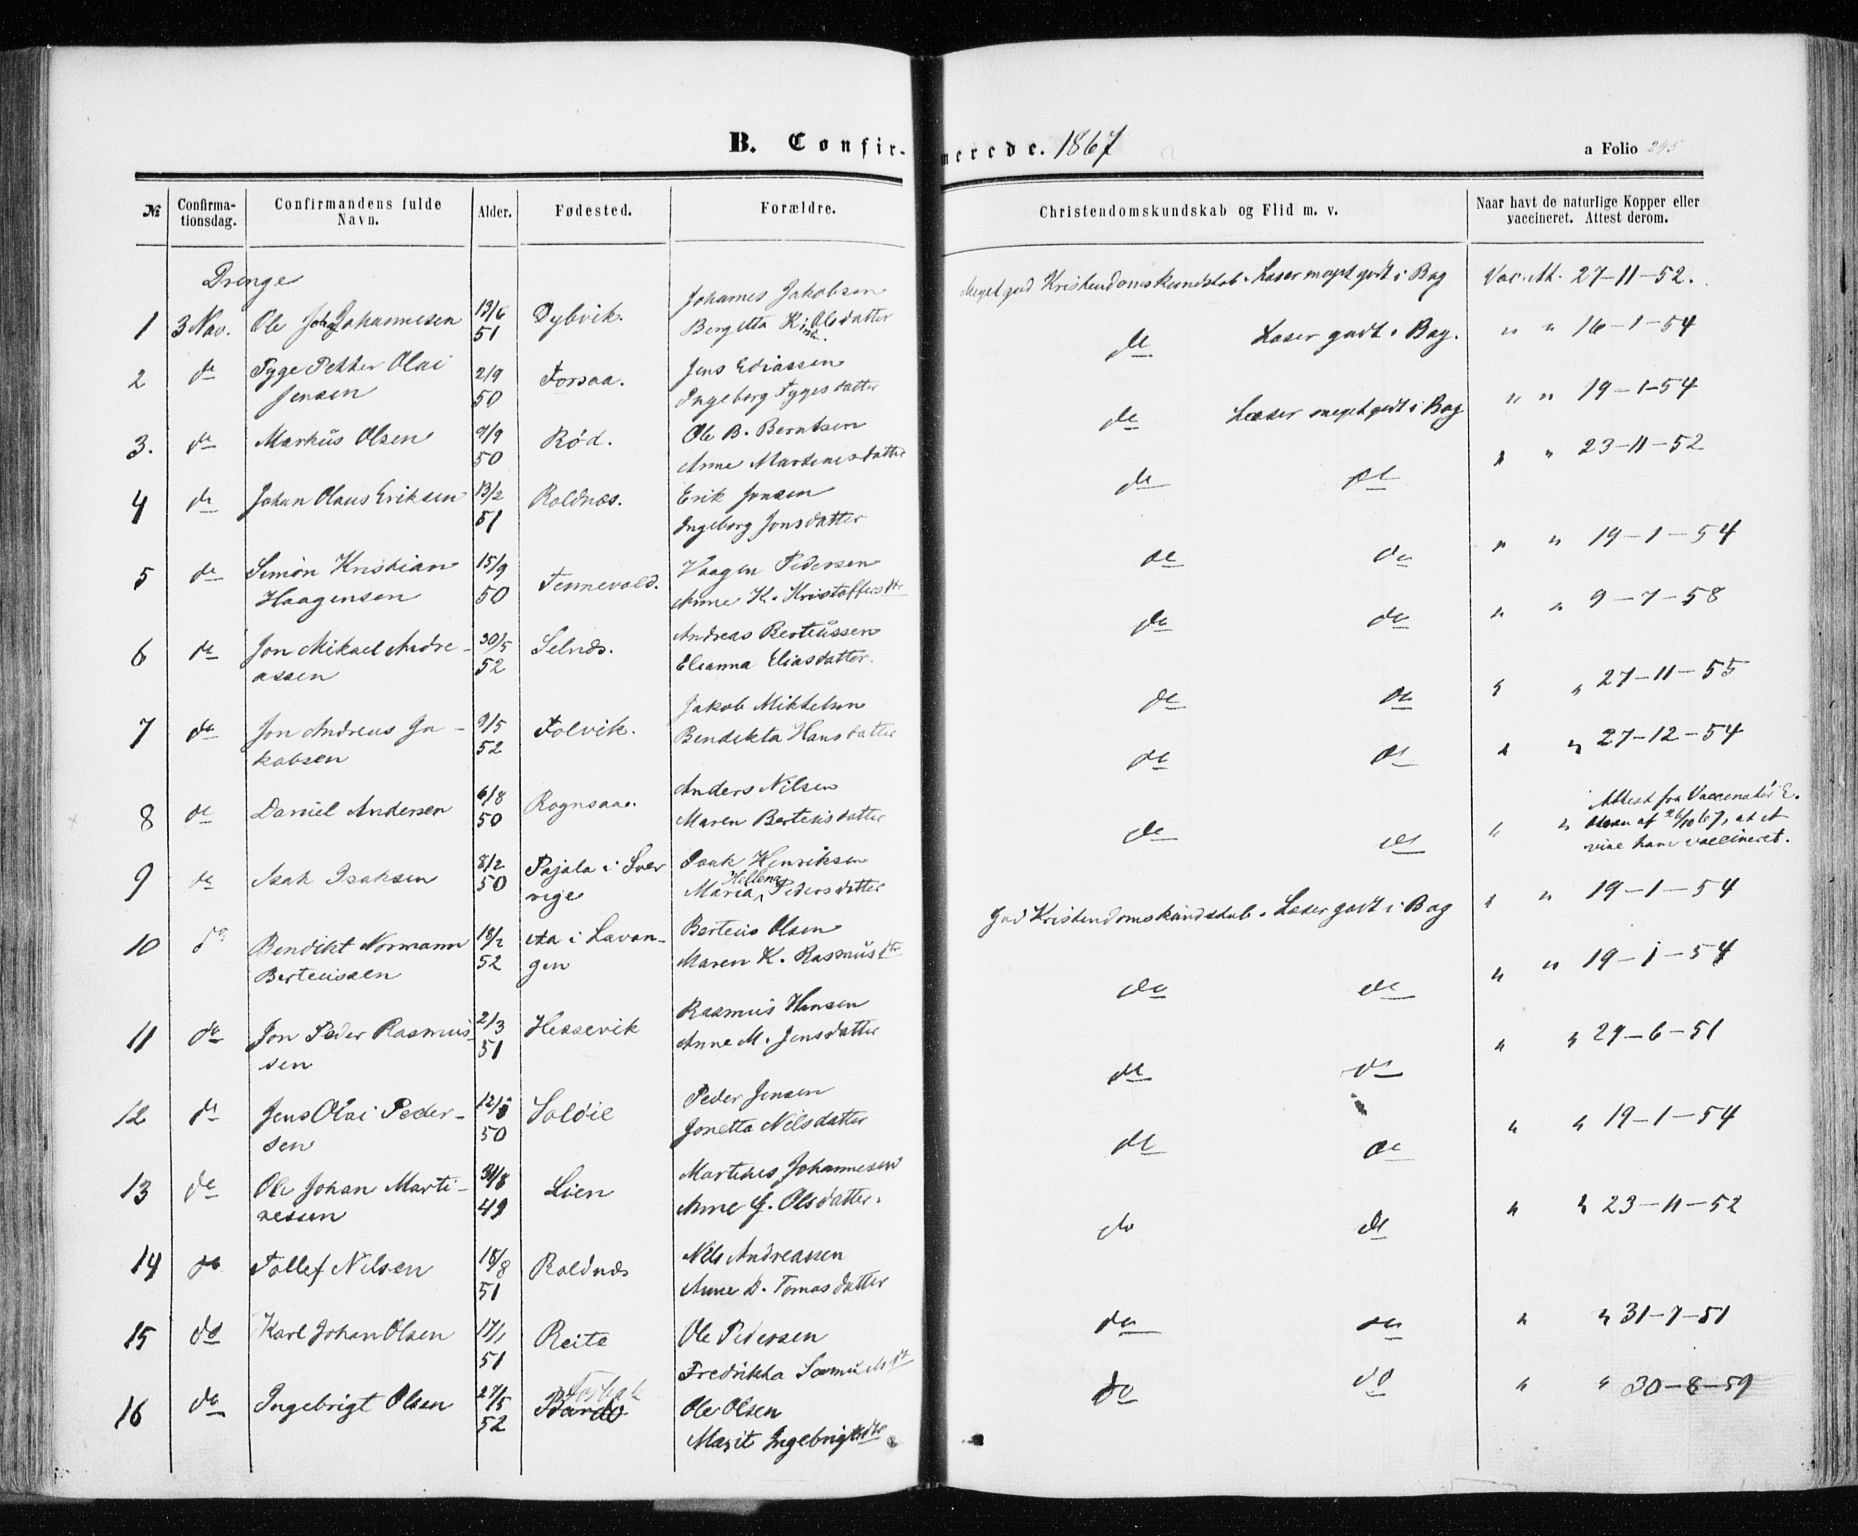 B. Confirmerede. 1867
a Folio 295
№
Confirma-
tionsdag.
Confirmandens fulde
Navn.
Alder.
Fødested.
Forældre.
Christendomskundskab og Flid m. v.
Naar havt de naturlige Kopper eller
vaccineret. Attest derom.
Drenge
1 3 Nov. Ole Johannesen 13/6 51 Dybvik. Johannes Jakobsen
Bergitta Kirst. Olsdatter
Meget god Kristendomskundskab. Læser meget godt i Bog
Vac. Att. 27-11-52.
2 do Tyge Petter Olai
Jensen
2/9 50 Forsaa. Jens Ediassen
Ingeborg Tygesdatter
do Læser godt i Bog.
" " 16-1-54
3. do Markus Olsen 9/9 50 Rød. Ole B. Berntsen
Anne Martinesdatter
do Læser meget godt i Bog
" " 19-1-54
4 do Johan Olaus Eriksen 13/2 51 Roldnæs. Erik Jonsen
Ingeborg Jonsdatter
do do
" " 23-11-52
5 do Simon Kristian
Haagensen
15/9 50 Tennevold. Haagen Pedersen
Anne K. Kristoffersdtr
do do
" " 19-1-54
6 do Jon Mikael Andre-
assen
30/5 52 Selnæs. Andreas Berteussen
Elianna Eliasdatter.
do do
" " 9-7-58
7 do Jon Andreas Ja-
kobsen
9/5 52 Folvik. Jakob Mikkelsen
Bendikta Hansdatter
do do
" " 27-11-55
8 do Daniel Andersen 6/8 50 Rognsaa. Anders Nilsen
Maren Berteusdatter
do do
" " 27-12-54
9 do Isak Isaksen 8/2 50 Pajala i Sver-
rige
Isak Henriksen
Maria Hellena Pedersdatter
do do
" " Attest fra Vaccinatør E.
Olsen af 26/10 67, at at
vise ham vaccineret.
10 do Bendikt Normann
Berteussen
18/2 52 Aa i Lavan-
gen
Berteus Olsen
Maren K. Rasmusdtr
God Kristendomskundskab. Læser godt i Bog
" " 19-1-54
11 do Jon Peder Rasmus-
sen
2/3 51 Hessevik Rasmus Hansen
Anne M. Jensdatter
do do
" " 19-1-54
12 do Jens Olai Peder-
sen
12/8 50 Soløie Peder Jensen
Jonetta Nilsdatter
do do
" " 29-6-51
13 do Ole Johan Marti-
nessen
31/8 49 Lien Martines Johannesen
Anne G. Olsdatter.
do do
" " 19-1-54
14 do Tollef Nilsen 18/8 51 Roldnæs Nils Andreassen
Anne D. Tomasdatter
do do
" " 23-11-52
15 do Karl Johan Olsen 17/1 51 Reite Ole Pedersen
Fredrikka Samuelsdt
do do
" " 31-7-51
16 do Ingebrigt Olsen 27/5 52 Bardo Ole Olsen
Marit Ingebrigtsdtr
do do
" " 30-8-59